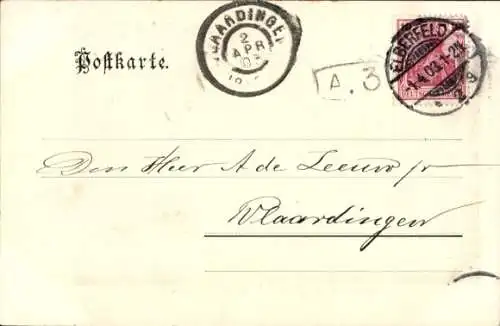 VLAARDINGEN
2
APR
03
Postkarte.
A. 3
ELBERFELD
-1.4.03.1-2N
Den Heer A de Leeuw jr
Vlaardingen